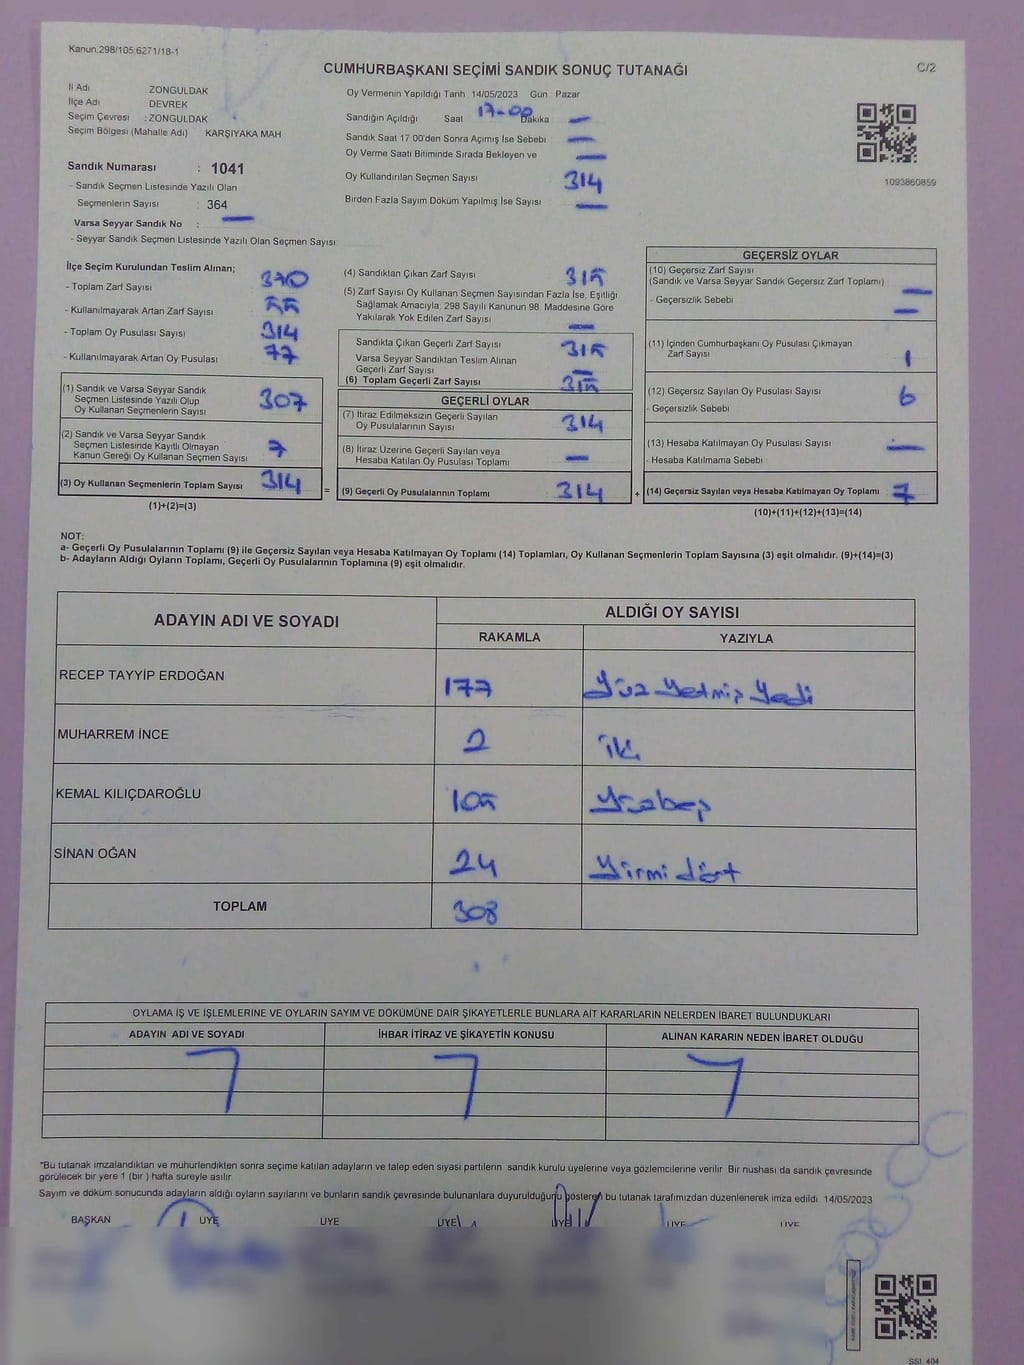 Kanun.298/105,6271/18-1
CUMHURBAŞKANI SEÇİMİ SANDIK SONUÇ TUTANAĞI
C/2
İl Adı ZONGULDAK
İlçe Adı DEVREK
Seçim Çevresi : ZONGULDAK
Seçim Bölgesi (Mahalle Adı) KARŞIYAKA MAH
Sandık Numarası : 1041
- Sandık Seçmen Listesinde Yazılı Olan
Seçmenlerin Sayısı : 364
Varsa Seyyar Sandık No : —
- Seyyar Sandık Seçmen Listesinde Yazılı Olan Seçmen Sayısı
Oy Vermenin Yapıldığı Tarih 14/05/2023 Gün Pazar
Sandığın Açıldığı Saat 17-00 Dakika —
Sandık Saat 17 00'den Sonra Açımış İse Sebebi —
Oy Verme Saati Bitiminde Sırada Bekleyen ve —
Oy Kullandırılan Seçmen Sayısı 314
Birden Fazla Sayım Döküm Yapılmış İse Sayısı —
1093860859
İlçe Seçim Kurulundan Teslim Alınan;
- Toplam Zarf Sayısı 370
- Kullanılmayarak Artan Zarf Sayısı 55
- Toplam Oy Pusulası Sayısı 314
- Kullanılmayarak Artan Oy Pusulası 77
(1) Sandık ve Varsa Seyyar Sandık
Seçmen Listesinde Yazılı Olup
Oy Kullanan Seçmenlerin Sayısı 307
(2) Sandık ve Varsa Seyyar Sandık
Seçmen Listesinde Kayıtlı Olmayan
Kanun Gereği Oy Kullanan Seçmen Sayısı 7
(3) Oy Kullanan Seçmenlerin Toplam Sayısı 314
(1)+(2)=(3)
=
(4) Sandıktan Çıkan Zarf Sayısı 315
(5) Zarf Sayısı Oy Kullanan Seçmen Sayısından Fazla İse, Eşitliği
Sağlamak Amacıyla, 298 Sayılı Kanunun 98. Maddesine Göre
Yakılarak Yok Edilen Zarf Sayısı —
Sandıkta Çıkan Geçerli Zarf Sayısı 315
Varsa Seyyar Sandıktan Teslim Alınan
Geçerli Zarf Sayısı —
(6) Toplam Geçerli Zarf Sayısı 315
GEÇERLİ OYLAR
(7) İtiraz Edilmeksizin Geçerli Sayılan
Oy Pusulalarının Sayısı 314
(8) İtiraz Üzerine Geçerli Sayılan veya
Hesaba Katılan Oy Pusulası Toplamı —
(9) Geçerli Oy Pusulalarının Toplamı 314
+
GEÇERSİZ OYLAR
(10) Geçersiz Zarf Sayısı
(Sandık ve Varsa Seyyar Sandık Geçersiz Zarf Toplamı) —
- Geçersizlik Sebebi —
(11) İçinden Cumhurbaşkanı Oy Pusulası Çıkmayan
Zarf Sayısı 1
(12) Geçersiz Sayılan Oy Pusulası Sayısı 6
- Geçersizlik Sebebi
(13) Hesaba Katılmayan Oy Pusulası Sayısı —
- Hesaba Katılmama Sebebi
(14) Geçersiz Sayılan veya Hesaba Katılmayan Oy Toplamı 7
(10)+(11)+(12)+(13)=(14)
NOT:
a- Geçerli Oy Pusulalarının Toplamı (9) ile Geçersiz Sayılan veya Hesaba Katılmayan Oy Toplamı (14) Toplamları, Oy Kullanan Seçmenlerin Toplam Sayısına (3) eşit olmalıdır. (9)+(14)=(3)
b- Adayların Aldığı Oyların Toplamı, Geçerli Oy Pusulalarının Toplamına (9) eşit olmalıdır.
ADAYIN ADI VE SOYADI ALDIĞI OY SAYISI
RAKAMLA YAZIYLA
RECEP TAYYİP ERDOĞAN 177 Yüz Yetmiş Yedi
MUHARREM İNCE 2 iki
KEMAL KILIÇDAROĞLU 105 Yüzbeş
SİNAN OĞAN 24 Yirmi dört
TOPLAM 308
OYLAMA İŞ VE İŞLEMLERİNE VE OYLARIN SAYIM VE DÖKÜMÜNE DAİR ŞİKAYETLERLE BUNLARA AİT KARARLARIN NELERDEN İBARET BULUNDUKLARI
ADAYIN ADI VE SOYADI İHBAR İTİRAZ VE ŞİKAYETİN KONUSU ALINAN KARARIN NEDEN İBARET OLDUĞU
*Bu tutanak imzalandıktan ve mühürlendikten sonra seçime katılan adayların ve talep eden siyasi partilerin sandık kurulu üyelerine veya gözlemcilerine verilir Bir nüshası da sandık çevresinde
görülecek bir yere 1 (bir ) hafta süreyle asılır
Sayım ve döküm sonucunda adayların aldığı oyların sayılarını ve bunların sandık çevresinde bulunanlara duyurulduğunu gösteren bu tutanak tarafımızdan düzenlenerek imza edildi 14/05/2023
BAŞKAN ÜYE ÜYE ÜYE ÜYE ÜYE ÜYE
SSI 404